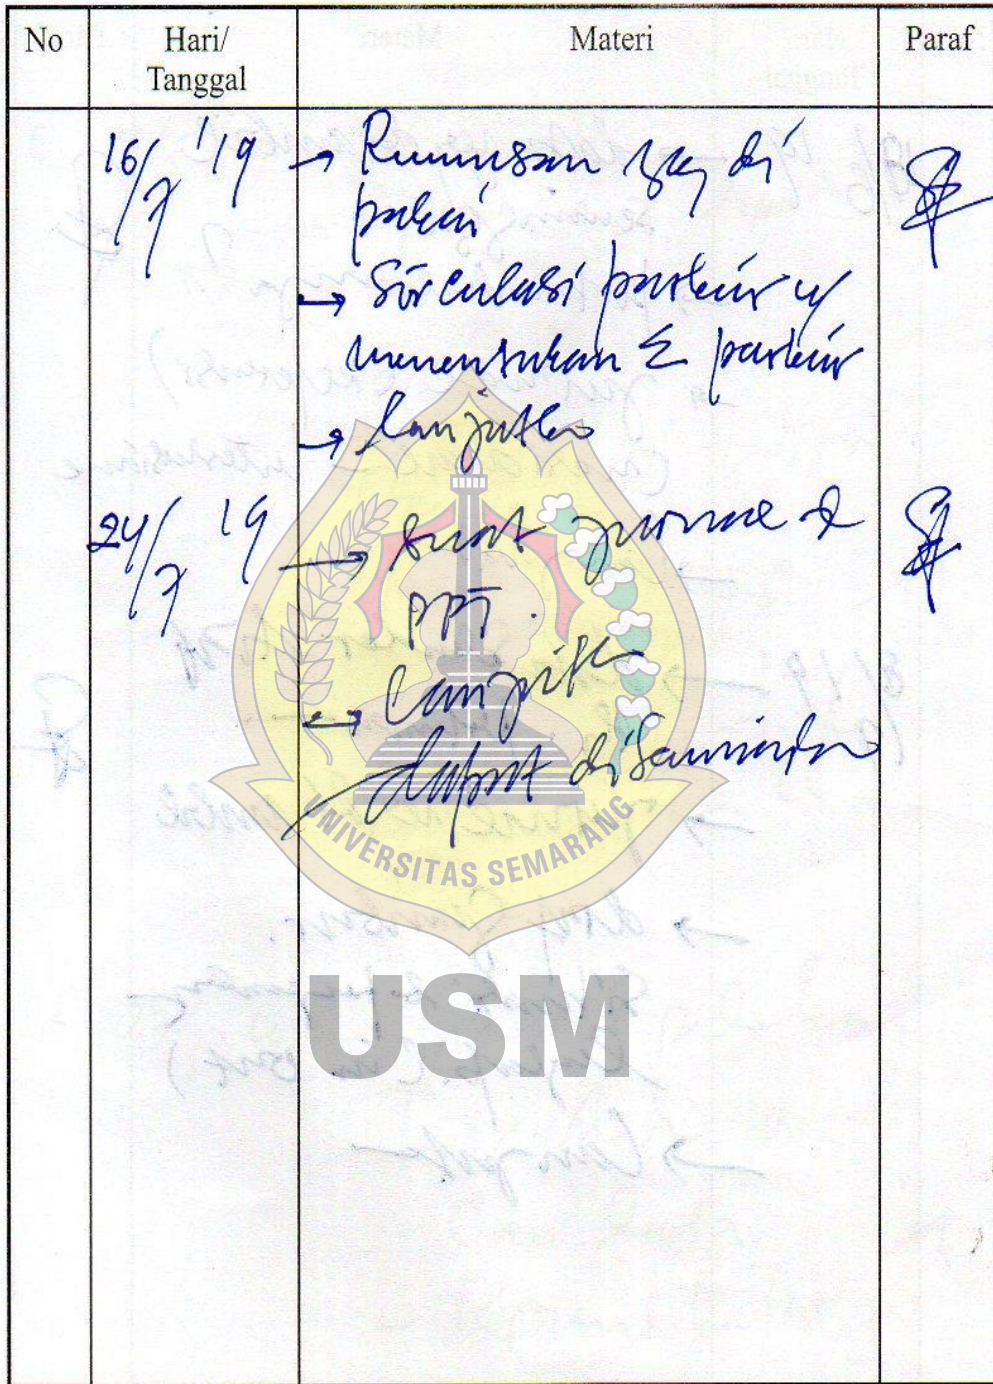 No Hari/ Tanggal Materi Paraf
16/7 '19 → Rumusan yg di
pakai
→ Sirculasi parkir u/
menentukan Σ parkir
→ lanjutko
24/7 19 → buat jurnal &
PPT.
→ lanjutk
dapat diseminarkan
UNIVERSITAS SEMARANG
USM